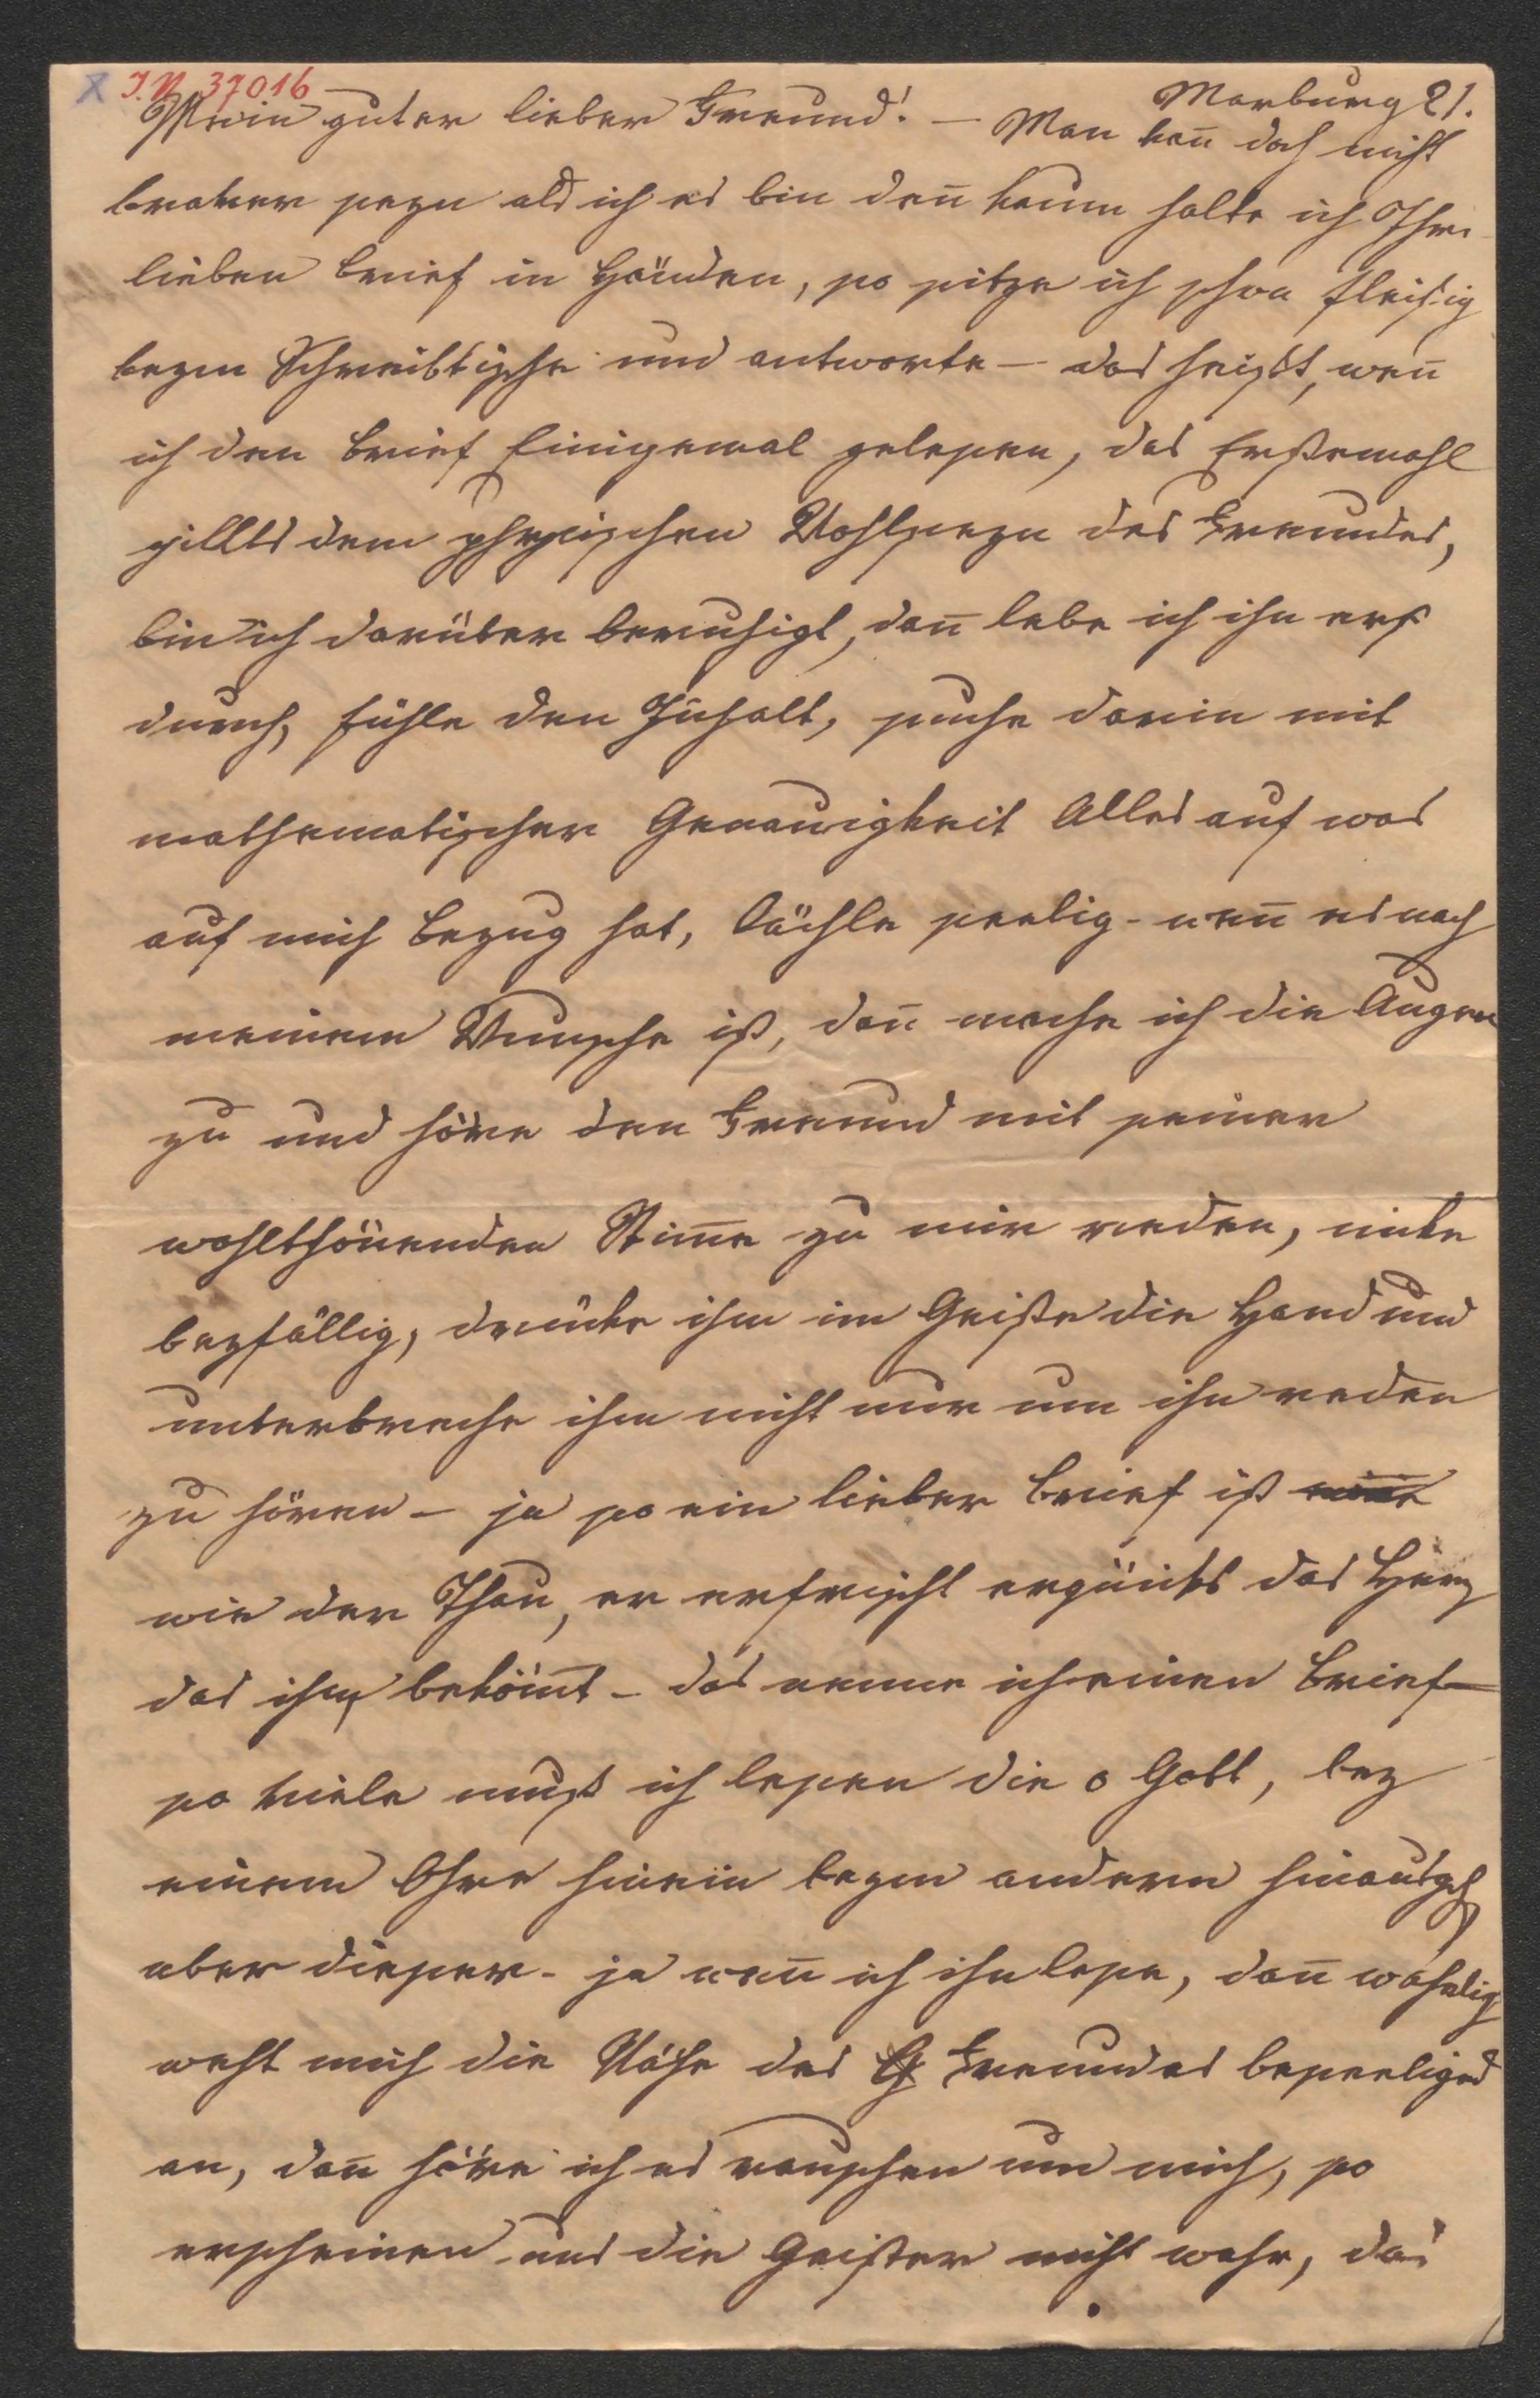 I.N. 37016
Marburg 21.
Mein guter lieber Freund! — Man kan̄ doch nicht
braver seyn als ich es bin den̄ kaum halte ich Ihre
lieben Brief in Händen, so sitze ich schon fleißig
beym Schreibtische und antworte — das heißt, wen̄
ich den Brief Einigemal gelesen, das Erstemahl
gillts dem physischen Wohlseyn des Freundes,
bin ich darüber beruhigt, dan̄ lebe ich ihn erst
durch, fühle den Inhalt, suche darin mit
mathematischer Genauigkeit Alles auf was
auf mich Bezug hat, lächle seelig - wen̄ es nach
meinem Wunsche ist, dan̄ mache ich die Augen
zu und höre den Freund mit seiner
wohlthönenden Stim̄e zu mir reden, nicke
beyfällig, drücke ihm im Geiste die Hand und
unterbreche ihn nicht nur um ihn reden
zu hören — ja so ein lieber Brief ist
wie der Thau, er erfrischt erquickt das Herz
das ihn beköm̄t — das nenne ich einen Brief —
so viele muß ich lesen die o Gott, bey
einem Ohre hinein beym andern hinaus
aber dieser - ja wen̄ ich ihn lese, dan̄ wahrlich
weht mich die Nähe des Freundes beseeligend
an, dan̄ höre ich es rauschen um mich, so
erscheinen uns die Geister nicht wahr, das